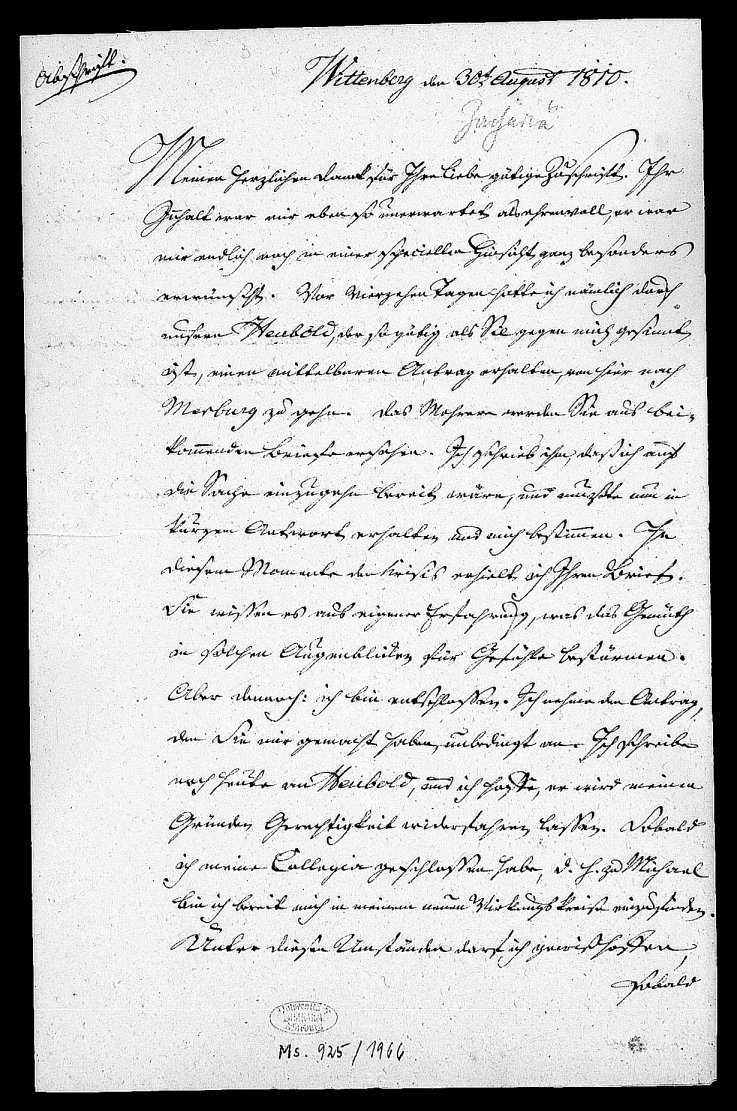 Abschrift.
Wittenberg den 30t August 1810.
Zachariä
Meinen herzlichen Dank für Ihre liebe gütige Zuschrift. Ihr
Inhalt war mir eben so unerwartet als ehrenvoll, er war
mir endlich noch in einer speciellen Hinsicht ganz besonders
erwünscht. Vor vierzehen Tagen hatte ich nämlich durch
unsern Haubold, der so gütig als Sie gegen mich gesinnt
ist, einen mittelbaren Antrag erhalten, von hier nach
Marburg zu gehn. Das Mehrere werden Sie aus bei-
kommenden Briefe ersehen. Ich schrieb ihm, daß ich auf
die Sache einzugehn bereit wäre, und mußte nun in
kurzem Antwort erhalten und mich bestimmen. In
diesem Momente der Krisis erhielt ich Ihren Brief.
Sie wissen es aus eigener Erfahrung, was das Gemüth
in solchen Augenblicken für Gefühle bestürmen.
Aber dennoch: ich bin entschlossen. Ich nehme den Antrag,
den Sie mir gemacht haben, unbedingt an. Ich schreibe
noch heute an Haubold, und ich hoffe, er wird meinen
Gründen Gerechtigkeit widerfahren lassen. Sobald
ich meine Collegia geschlossen habe, d. h. zu Michael
bin ich bereit mich in meinem neuen Wirkungskreise einzufinden.
Unter diesen Umständen darf ich gewiß hoffen,
sobald
Universitäts
Bibliothek
Marburg
Ms. 925/1966